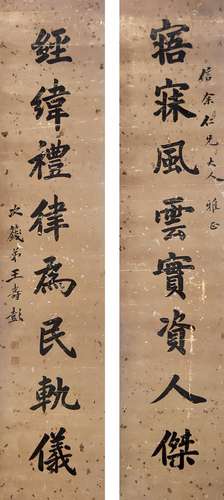 寤寐風雲實資人傑
信余仁兄大人雅正
經緯禮律為民軌儀
次籛弟王壽彭